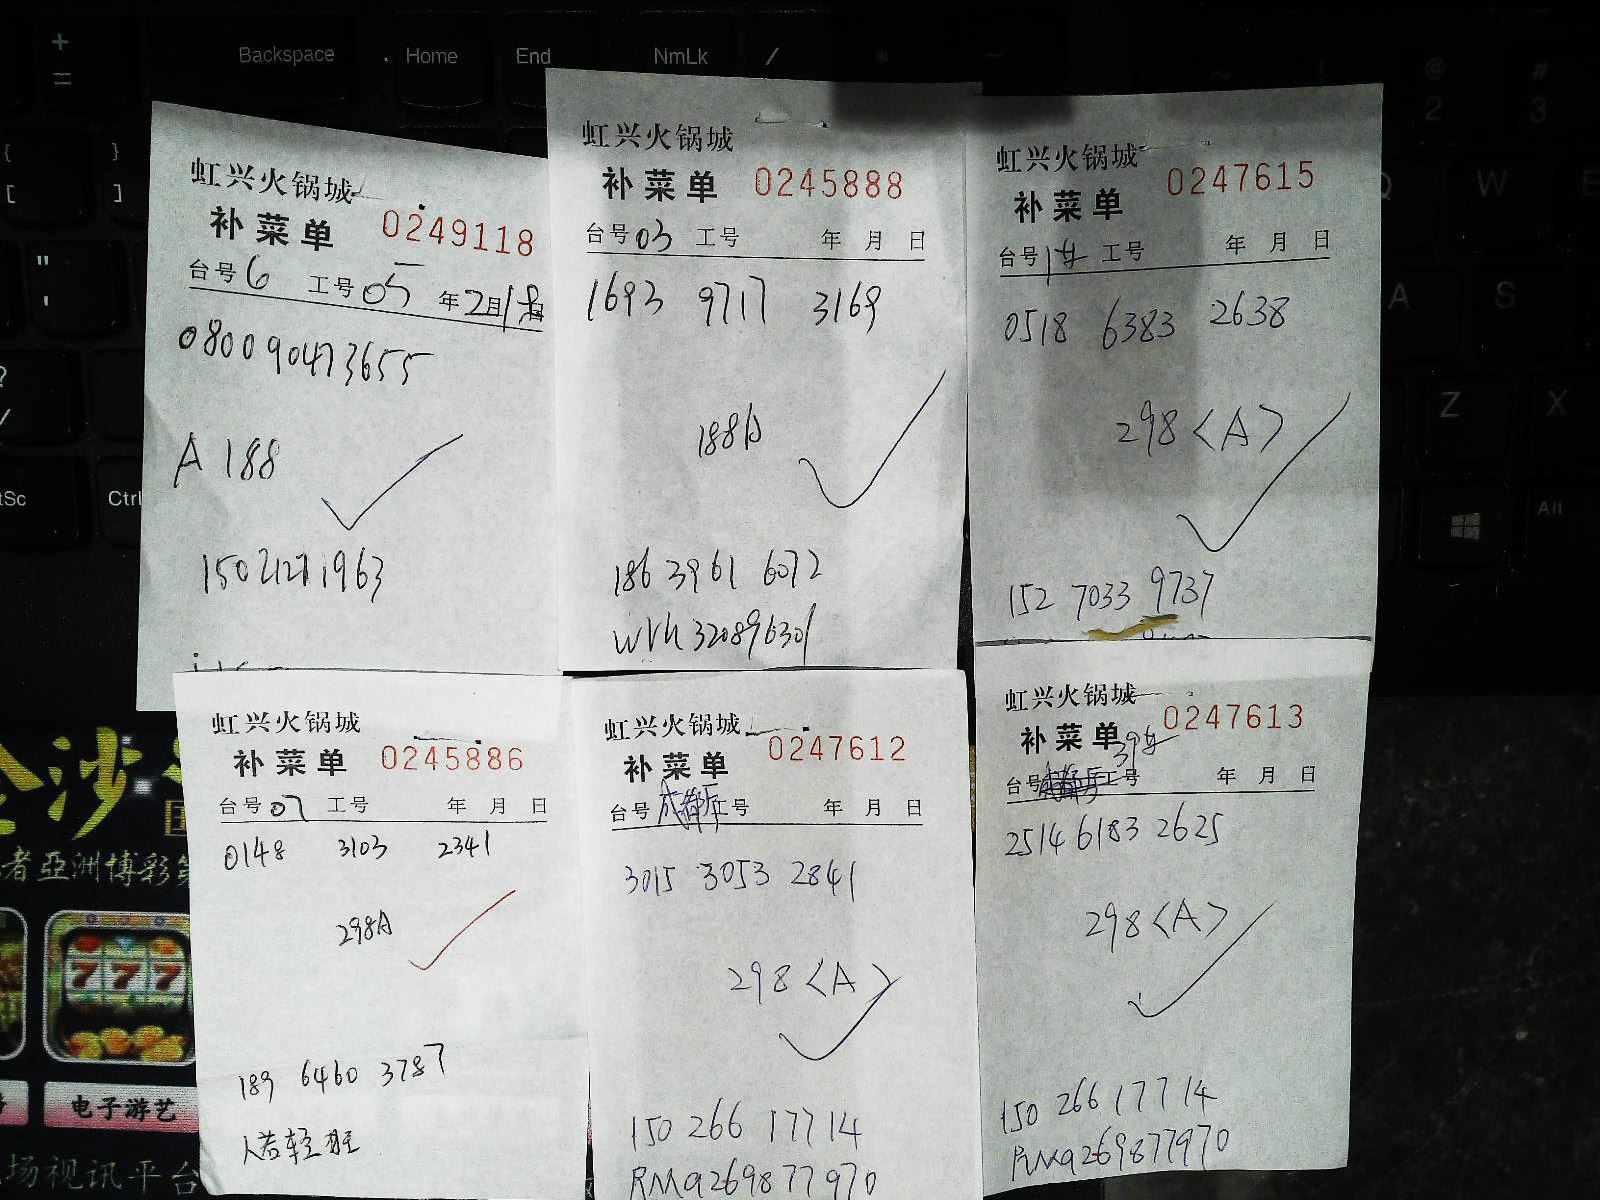 +
=
Backspace
Home
End
NmLk
/
*
-
~
!
@
2
#
3
{
[
}
]
"
'
?
/
Ctrl
Q
W
E
A
S
Z
X
Alt
虹兴火锅城
补菜单 0249118
台号 6 工号 05 年 2月18日
080090473655
A 188
15021271963
虹兴火锅城
补菜单 0245888
台号 03 工号 年 月 日
1693 9717 3169
188A
186 3961 6072
wrh320896301
虹兴火锅城
补菜单 0247615
台号 工号 年 月 日
0518 6383 2638
298 <A>
152 7033 9737
虹兴火锅城
补菜单 0245886
台号 07 工号 年 月 日
0148 3103 2341
298A
189 6460 3787
虹兴火锅城
补菜单 0247612
台号 工号 年 月 日
3015 3053 2841
298 <A>
150 266 17714
RMa269877970
虹兴火锅城
补菜单 0247613
台号 工号 年 月 日
2514 6183 2625
298 <A>
150 266 17714
RMa269877970
金沙
者亞洲博彩
777
电子游艺
场视讯平台